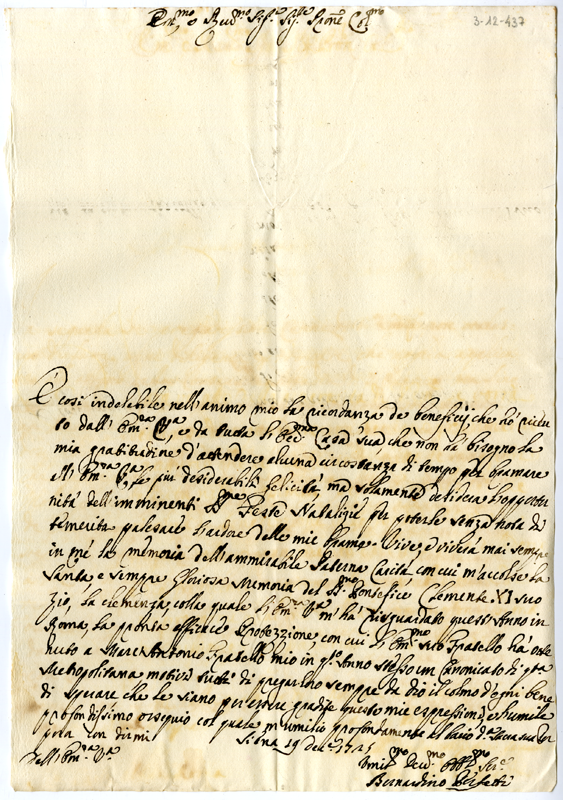 3-12-437
Em.mo e Rev.mo Sig.r Sig.r Prone Col.mo
È così indelebile nell'animo mio la ricordanza de beneficij, che hò ricevu
to dall' Em.za V.ra, e da tutta l' Ecc.ma Casa sua che non hà bisogno la
mia gratitudine d'attendere alcuna circostanza di tempo per bramare
all' Em.za V.ra le più desiderabili felicità, ma solamente desidera l'opportu
nità dell'imminenti S.me Feste Natalizie per poterle senza nota di
temerità palesare l'ardore delle mie brame. Vive, e viverà mai sempre
in mè la memoria dell'ammirabile Paterna Carità con cui m'accolse la
Santa e sempre Gloriosa Memoria del S.mo Pontefice Clemente XI suo
Zio, la clemenza, colla quale l' Em.za V.ra m'hà risguardato quest'Anno in
Roma, la pronta efficace Protezzione, con cui l' Em.mo suo Fratello hà otte
nuto a Marc'Antonio Fratello mio in q.o Anno stesso un Canonicato di q.ta
Metropolitana motivi tutti di pregarlene sempre da Dio il colmo d'ogni bene
di sperare che le siano per essere gradite queste mie espressioni, e l'umile
profondissimo ossequio col quale m'umilio profondamente al bacio d.a Sacra sua Por
pora con dirmi
Siena 19 Dec.e 1725
Dell' Em.za V.ra
Umil.mo Dev.mo Obb.mo Ser.e
Bernardino Perfetti